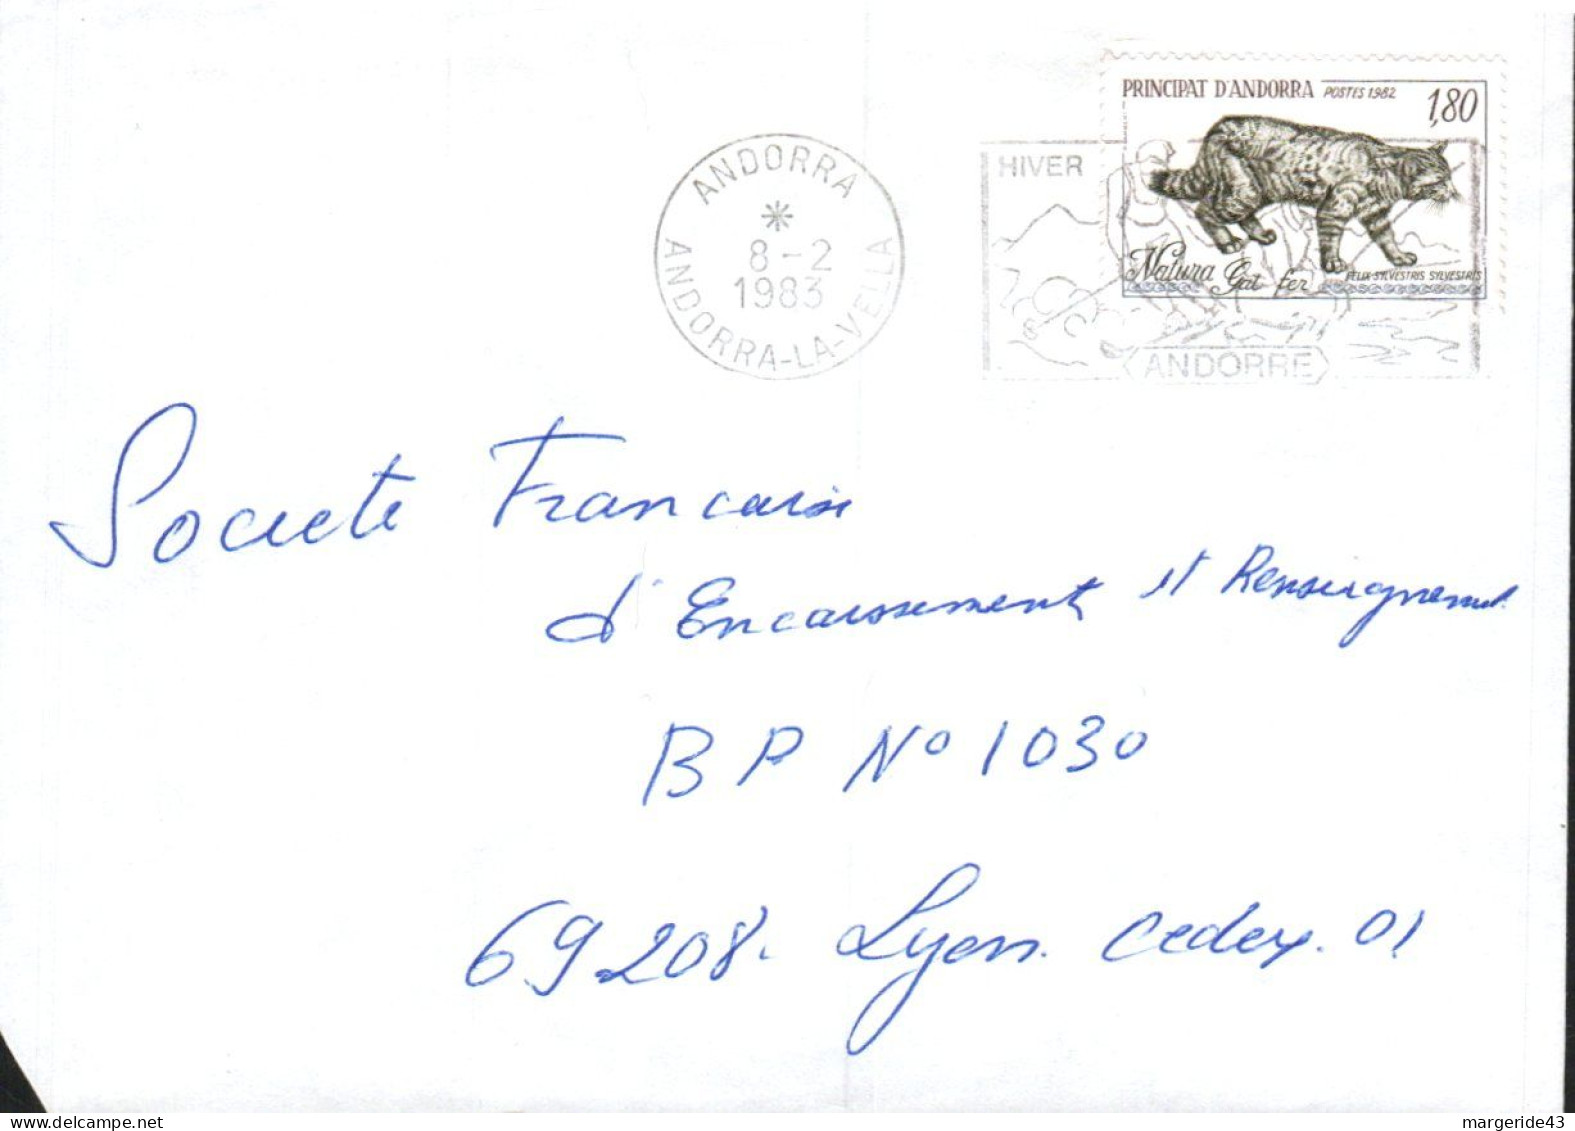 PRINCIPAT D'ANDORRA POSTES 1982 1,80
Natura Gat fer FELIX SYLVESTRIS SYLVESTRIS
ANDORRA
8-2
1983
ANDORRA-LA-VELLA
HIVER
ANDORRE
Societe Francaise
d'Encaissement et Renseignement
BP Nº 1030
69208. Lyon. cedex. 01
margeride43